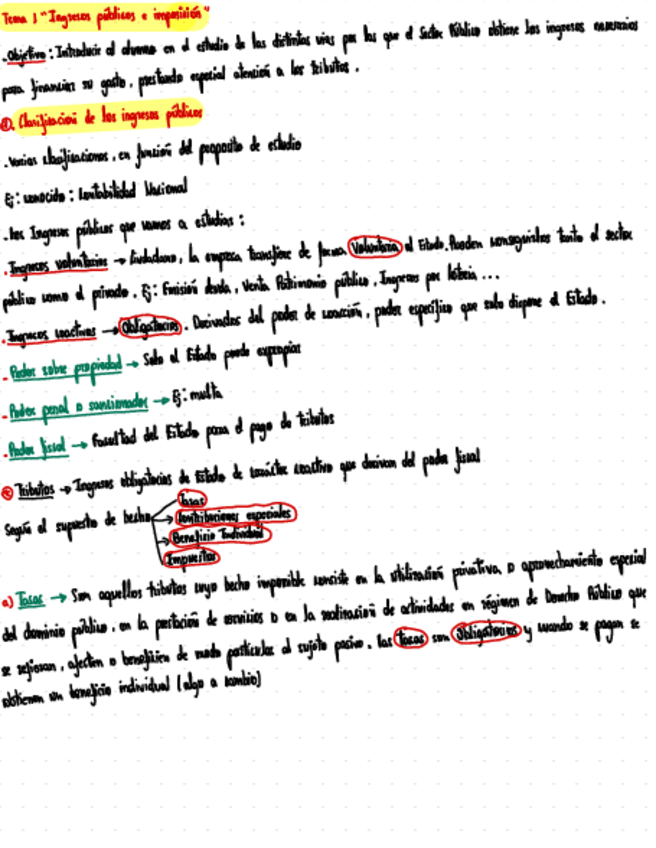 Tema 1 "Ingresos públicos e imposición"
- Objetivo: Introducir al alumno en el estudio de las distintas vías por las que el Sector Público obtiene los ingresos necesarios
para financiar su gasto, prestando especial atención a los tributos.
①. Clasificación de los ingresos públicos
- Varias clasificaciones, en función del proposito de estudio
Ej: conocido: Contabilidad Nacional
- Los Ingresos públicos que vamos a estudiar:
- Ingresos voluntarios → Ciudadano, la empresa transfiere de forma Voluntaria al Estado. Pueden conseguirlos tanto el sector
público como el privado. Ej: Emisión deuda, Venta Patrimonio público, Ingresos por lotería ...
- Ingresos coactivos → Obligatorios. Derivados del poder de coacción, poder específico que solo dispone el Estado.
- Poder sobre propiedad → Solo el Estado puede expropiar
- Poder penal o sancionador → Ej: multa
- Poder fiscal → Facultad del Estado para el pago de tributos
Tributos → Ingresos obligatorios de Estado de carácter coactivo que derivan del poder fiscal
Según el supuesto de hecho
Tasas
→ Contribuciones especiales
→ Beneficio Individual
Impuestos
a) Tasas → Son aquellos tributos cuyo hecho imponible consiste en la utilización privativa o aprovechamiento especial
del dominio público, en la prestación de servicios o en la realización de actividades en régimen de Derecho Público que
se refieran, afecten o beneficien de modo particular al sujeto pasivo. Las tasas son Obligatorias y cuando se pagan se
obtienen un beneficio individual (algo a cambio)